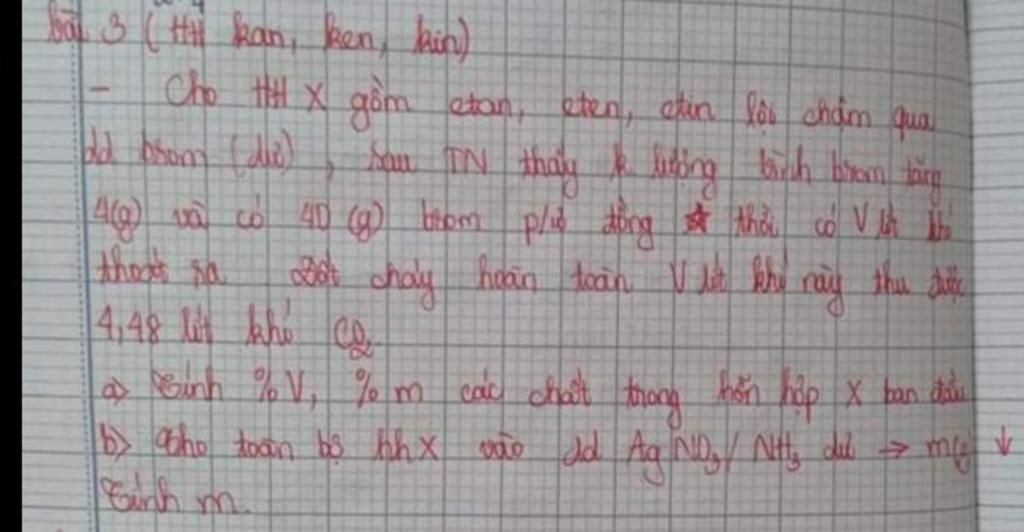 bài 3 (HH kan, ken, kin)
- Cho HH X gồm etan, eten, etin lội chậm qua
dd brom (dư), sau TN thấy k lượng bình brom tăng
4(g) và có 40 (g) brom p/ư đồng thời có V lít khí
thoát ra đốt cháy hoàn toàn V lít khí này thu được
4,48 lít khí CO2
a) Tính %V, %m các chất trong hỗn hợp X ban đầu
b) Cho toàn bộ hh X vào dd AgNO3/NH3 dư → m(g) ↓
Tính m.